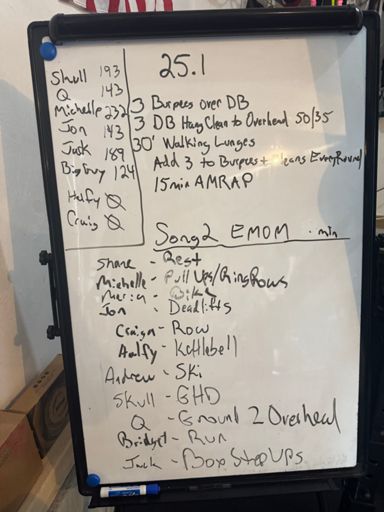 Skull 193
Q 143
Michelle 232
Jon 143
Jack 189
Big Guy 124
Halfy Ø
Craig Ø
25.1
3 Burpees over DB
3 DB Hang Clean to Overhead 50/35
30' Walking Lunges
Add 3 to Burpees + Cleans Every Round
15 min AMRAP
Song 2 EMOM . min
Shane - Rest
Michelle - Pull Ups/Ring Rows
Maria - Bike
Jon - Deadlifts
Craign - Row
Halfy - Kettlebell
Andrew - Ski
Skull - GHD
Q - Ground 2 Overhead
Bridget - Run
Jack - Box Step Ups